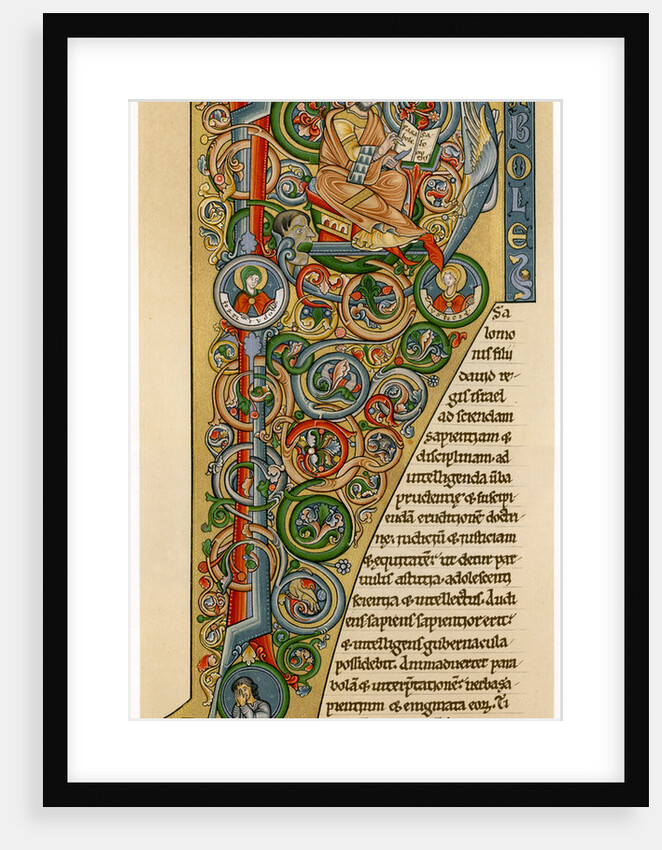 BOLE
Sa
lomo
nis filii
dauid re-
gis israel
ad sciendam
sapientiam &
disciplinam, ad
intelligenda ūba
prudentię & suscipi
endā eruditionē doctri
nę, iudiciū & iusticiam
& equitatē: ut detur par
uulis astutia, adolescenti
scientia & intellectus. Audi
ens sapiens sapientior erit:
& intelligens gubernacula
possidebit. Animaduertet para
bolā & interp̄tationē: uerba sa
pientium & enigmata eoꝝ. Ti